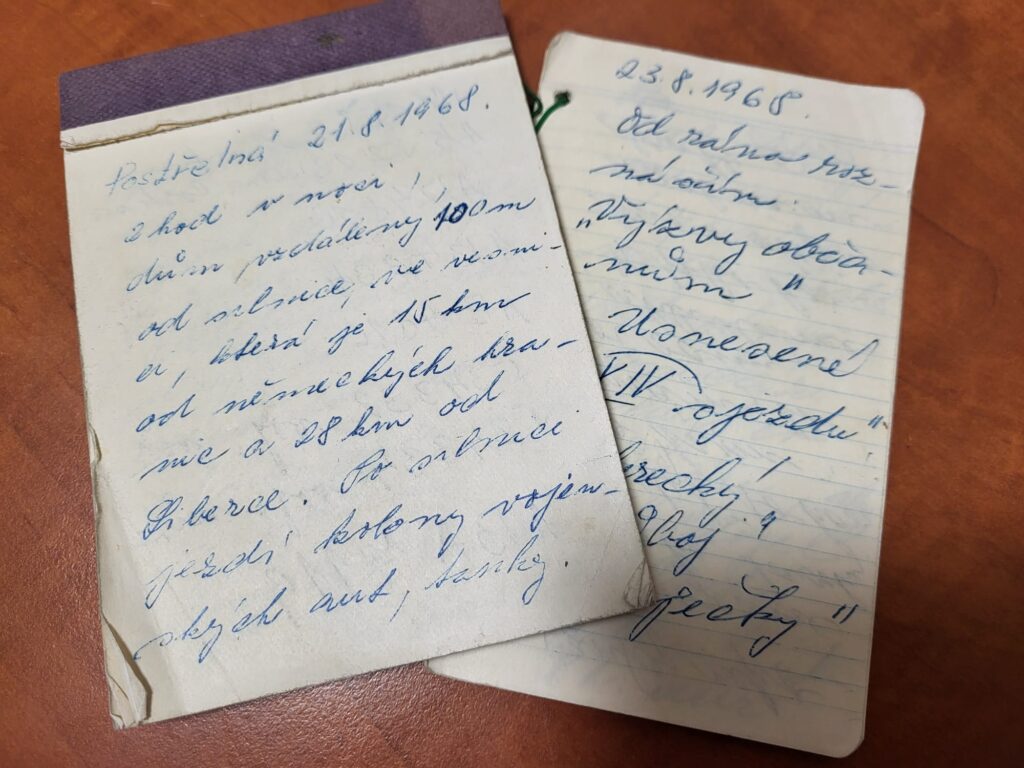 Postřelná 21.8.1968.
2 hod v noci,
dům vzdálený 100m
od silnice, ve vesni-
ci, která je 15 km
od německých hra-
nic a 28 km od
Liberce. Po silnici
jezdí kolony vojen-
ských aut, tanky.
23.8.1968.
Od rána roz-
náším.
"Výzvy obča-
nům"
Usnesené
XIV sjezdu"